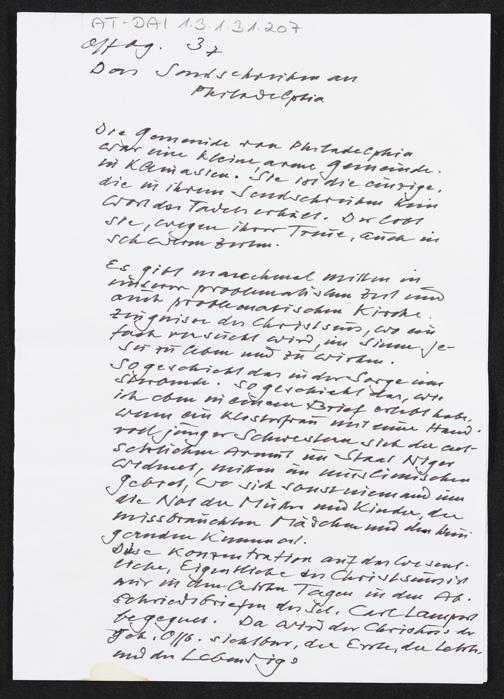 AT-DAI 1.3.1.31.207
Offbg. 3,7
Das Sendschreiben an
Philadelphia
Die Gemeinde von Philadelphia
war eine kleine arme Gemeinde.
in Kleinasien. Sie ist die einzige,
die in ihrem Sendschreiben kein
Wort des Tadels erhält. Der lobt
sie, wegen ihrer Treue, auch in
schweren Zeiten.
Es gibt manchmal mitten in
unserer problematischen Zeit und
auch problematischen Kirche
Zeugnisse des Christseins, wo ein-
fach versucht wird, im Sinne Je-
su zu leben und zu wirken.
So geschieht das in der Sorge um
Sterbende. So geschieht das, wie
ich eben in einem Brief erlebt habe,
wenn eine Klosterfrau mit einer Hand-
voll junger Schwestern sich der ent-
setzlichen Armut im Staat Niger
widmet, mitten im muslimischen
Gebiet, wo sich sonst niemand um
die Not der Mütter und Kinder, der
missbrauchten Mädchen und den
Kümmert.
Diese Konzentration auf das Wesent-
liche, Eigentliche des Christseins ist
mir in den letzten Tagen in den Ab-
schiedsbriefen des sel. Carl Lampert
begegnet. Da wird der Christus der
Geh. Off. sichtbar, der Erste, der Letzte,
und der Lebendige